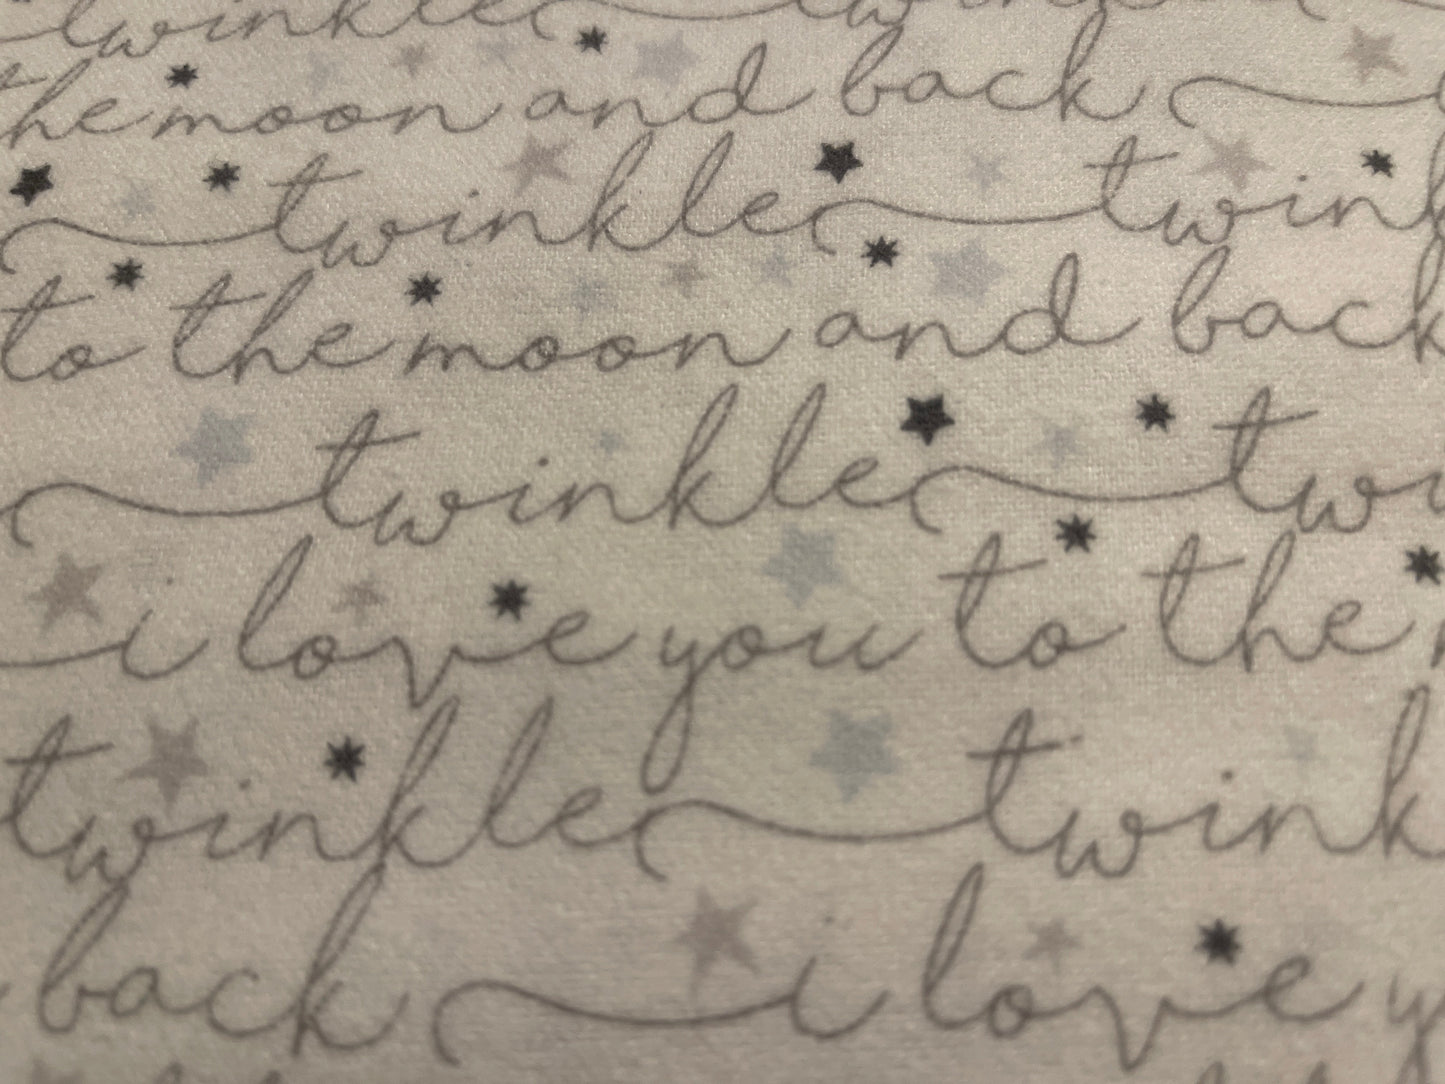 twinkle twinkle
the moon and back
twinkle twink
to the moon and back
twinkle twi
i love you to the
twinkle twink
back i love y